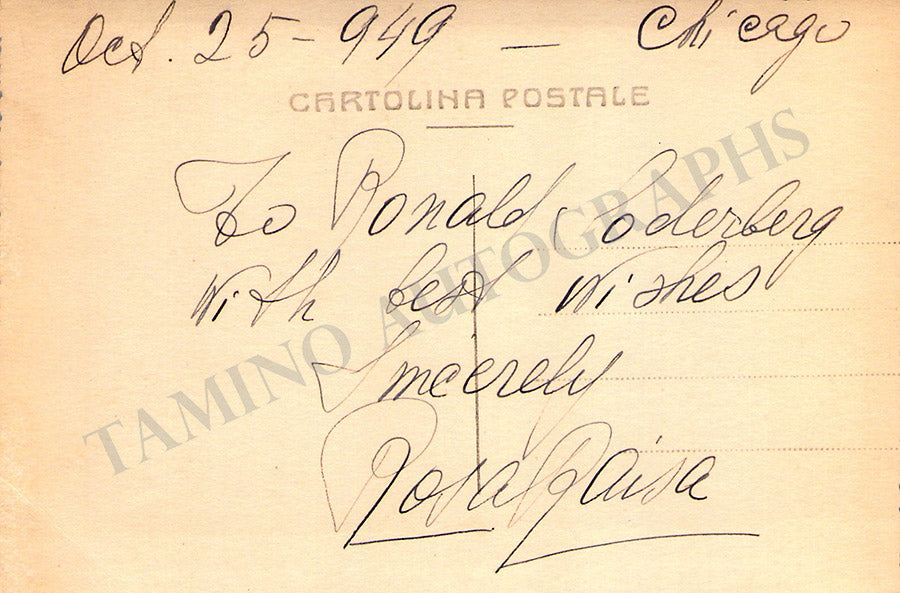 Oct. 25 - 949 — Chicago
CARTOLINA POSTALE
To Ronald Soderberg
With best Wishes
Sincerely
Rosa Raisa
TAMINO AUTOGRAPHS